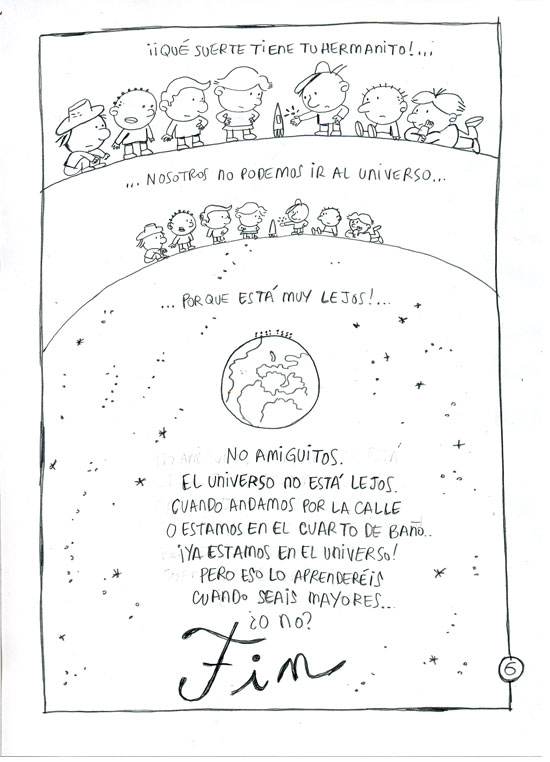 ¡¡QUÉ SUERTE TIENE TU HERMANITO!...
... NOSOTROS NO PODEMOS IR AL UNIVERSO...
... PORQUE ESTÁ MUY LEJOS!...
NO AMIGUITOS.
EL UNIVERSO NO ESTÁ LEJOS.
CUANDO ANDAMOS POR LA CALLE
O ESTAMOS EN EL CUARTO DE BAÑO..
¡YA ESTAMOS EN EL UNIVERSO!
PERO ESO LO APRENDERÉIS
CUANDO SEAIS MAYORES...
¿O NO?
Fin
6